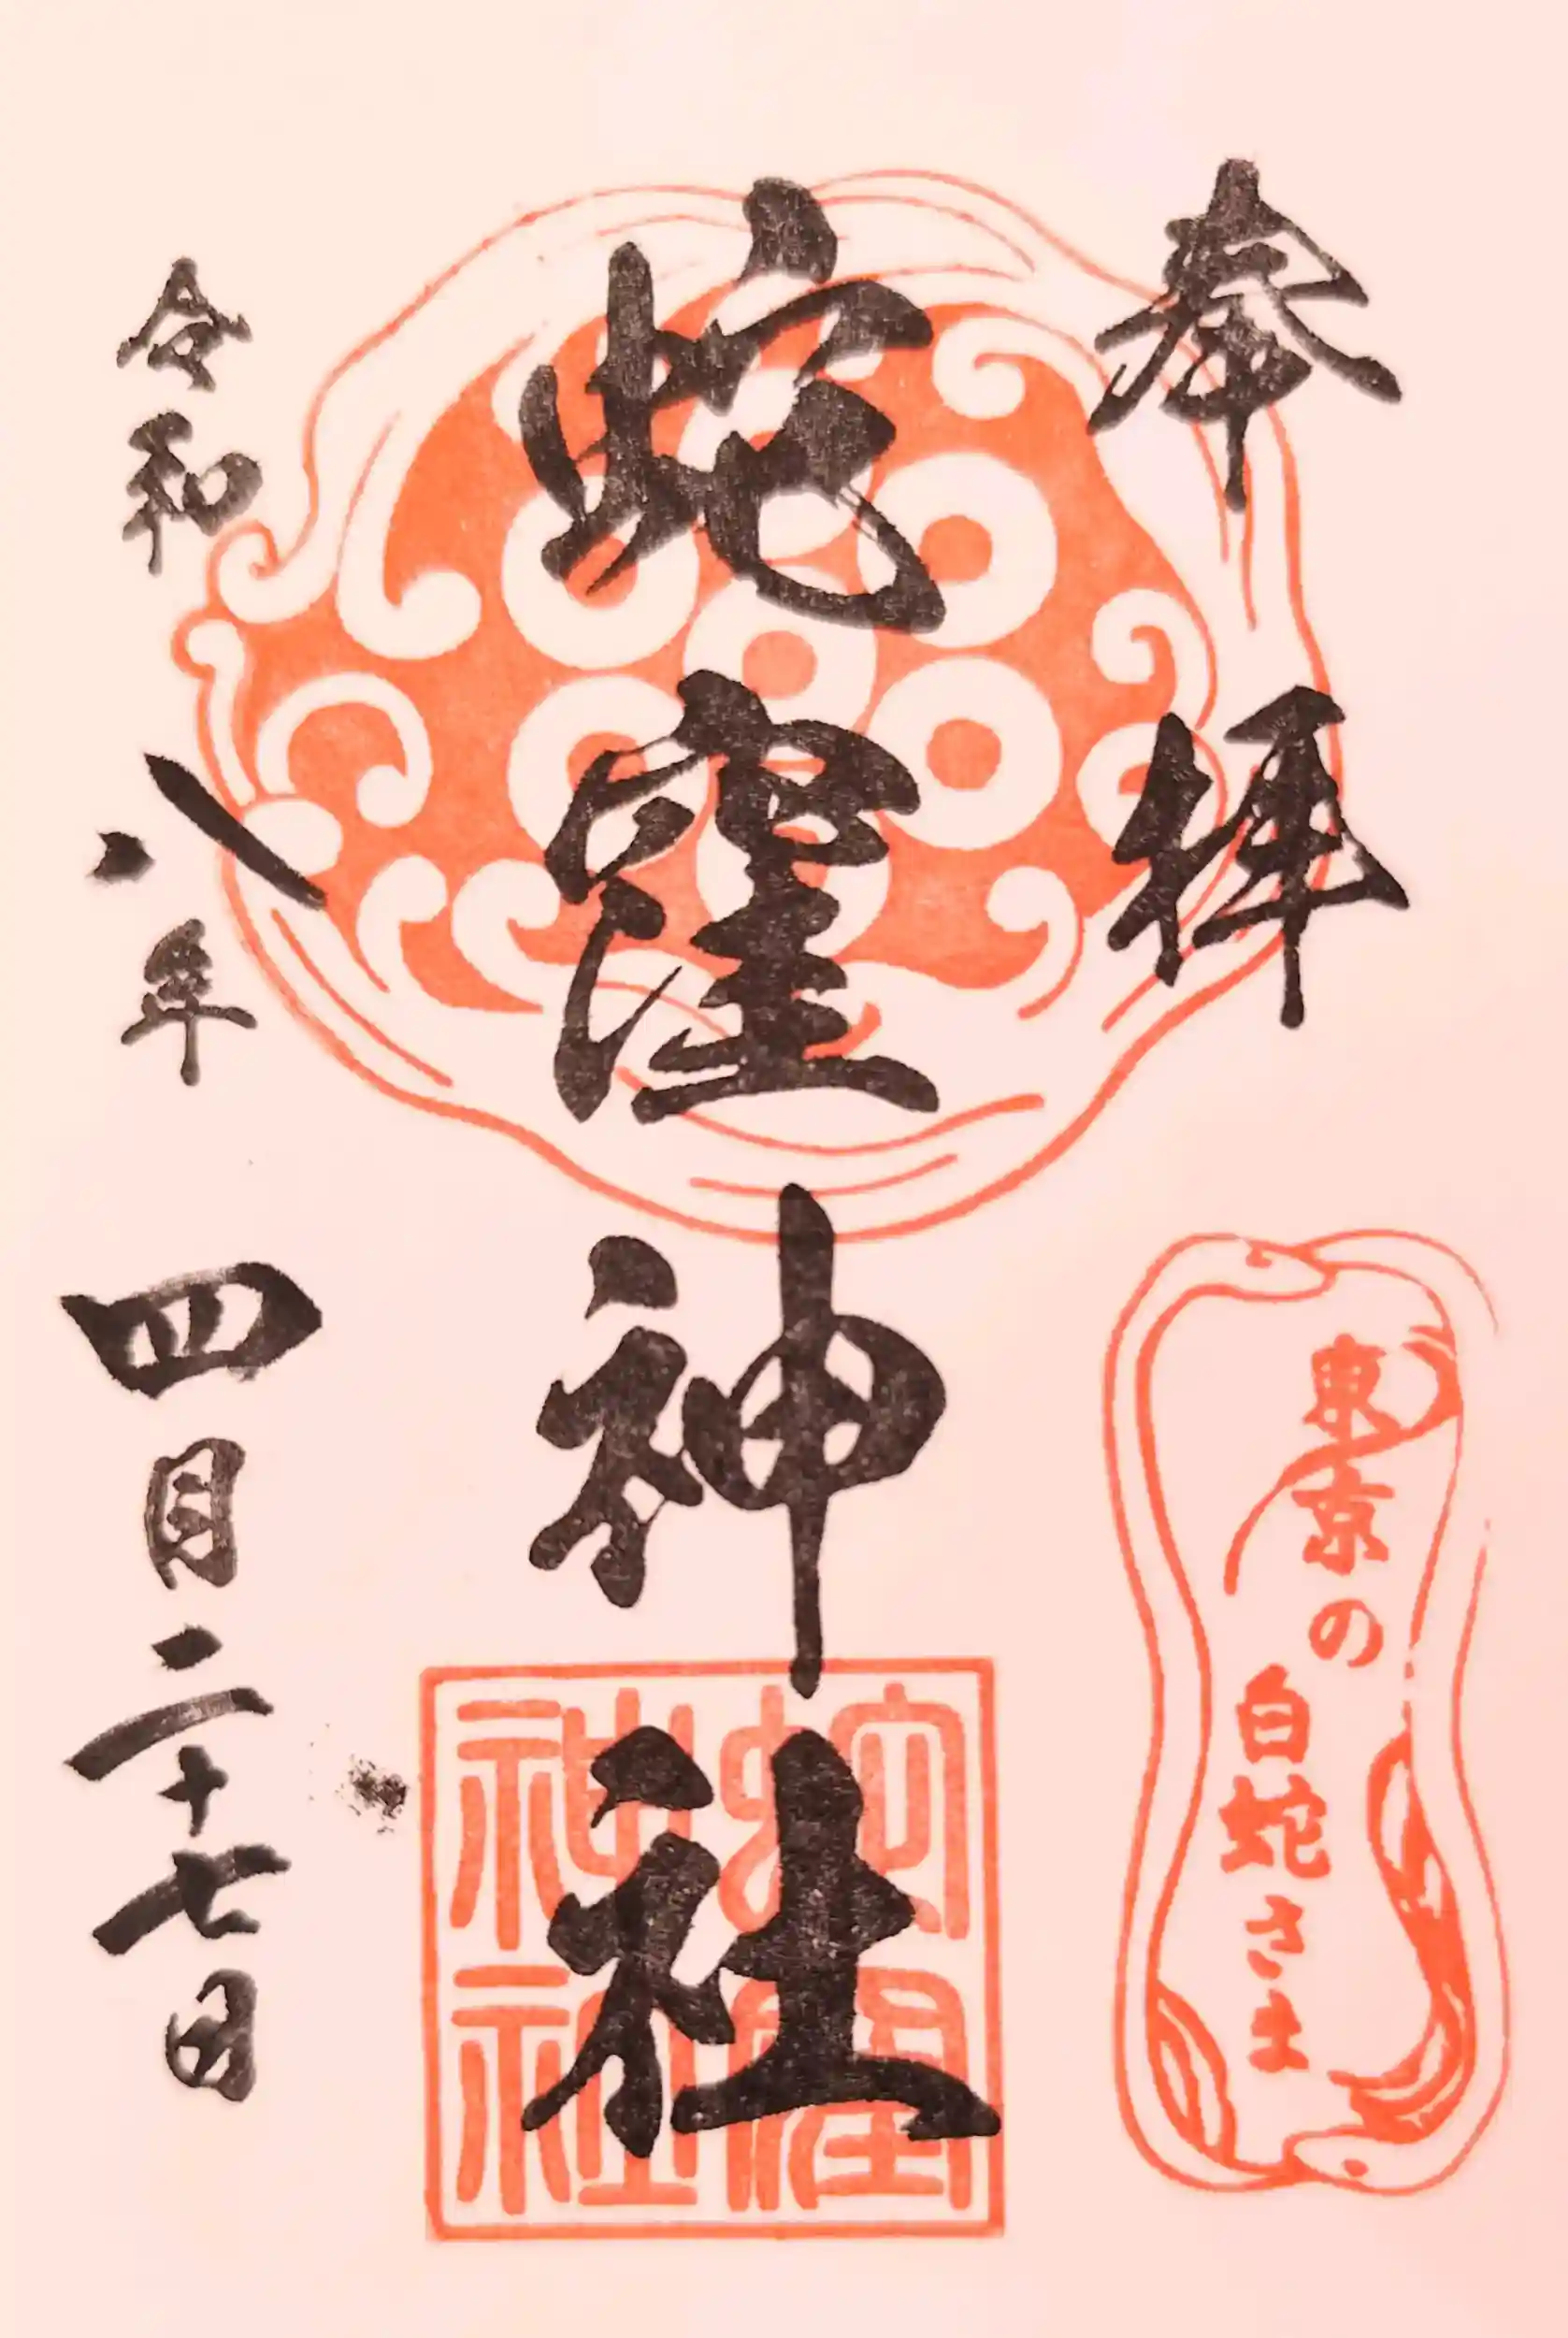 奉拝
東京の
白蛇さま
蛇窪神社
蛇窪
神社
令和八年四月二十七日